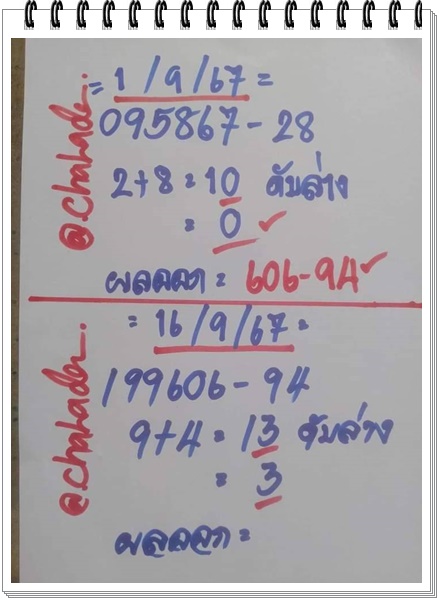 = 1/9/67 =
@Chalada.
095867-28
2+8=10 ดับล่าง
= 0 ✓
ผลออก = 606-94 ✓
= 16/9/67 =
@Chalada.
199606-94
9+4=13 ดับล่าง
= 3
ผลออก =